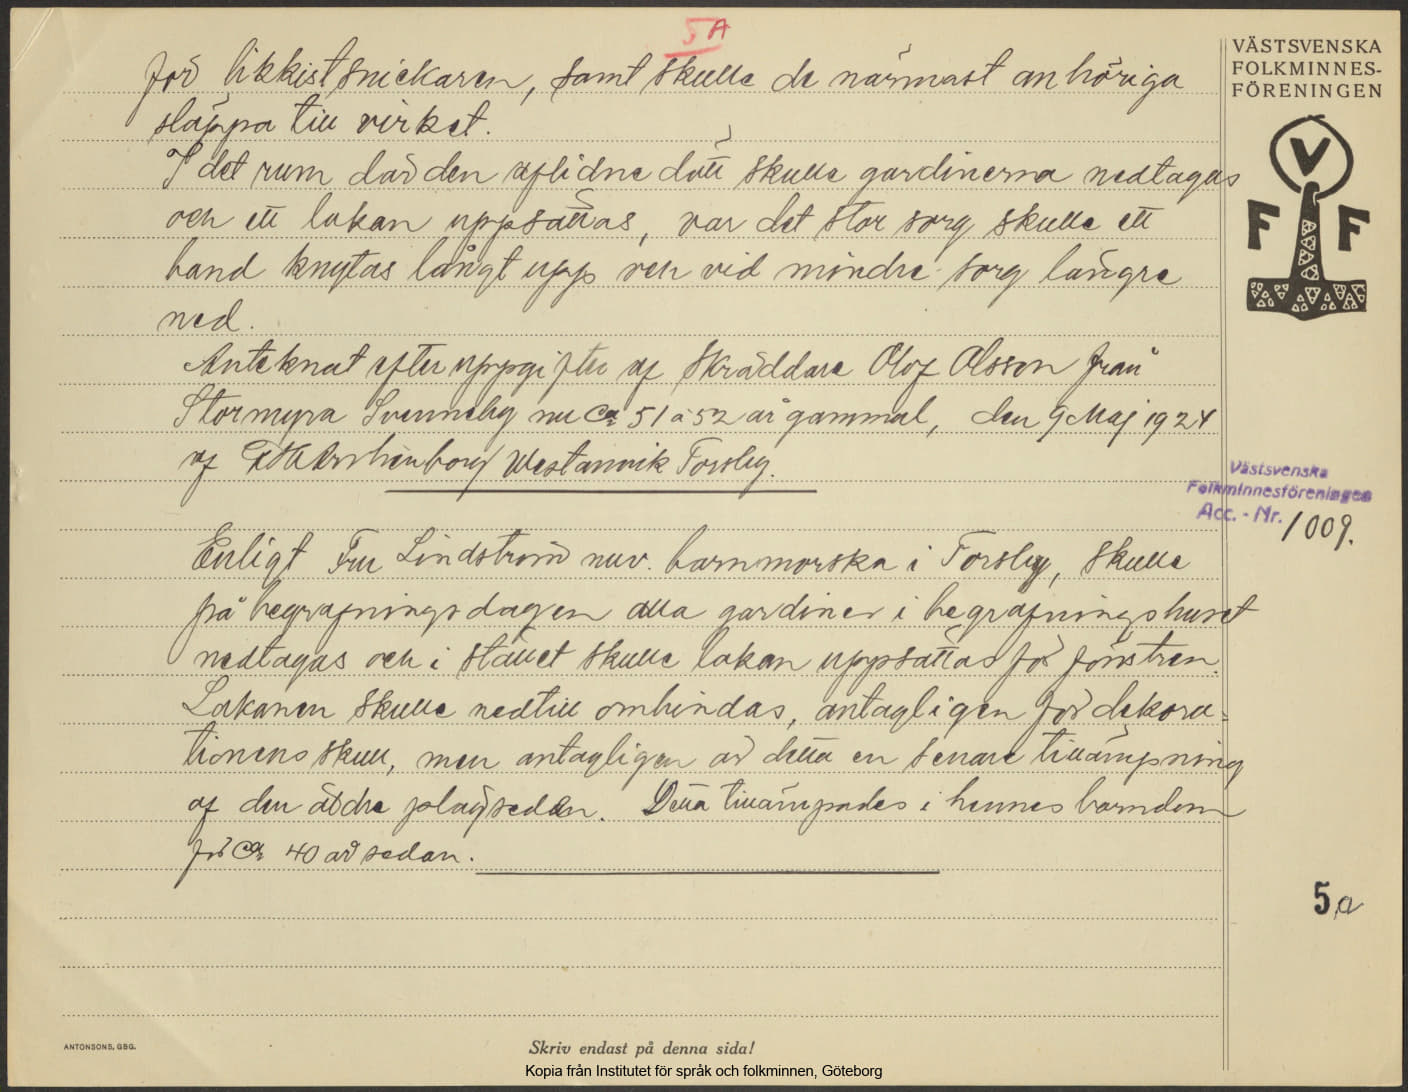 5A
VÄSTSVENSKA
FOLKMINNES-
FÖRENINGEN
V
F F
för likkistsnickaren, samt skulle de närmast anhöriga
släppa till virket.
I det rum där den aflidne dött skulle gardinerna nedtagas
och ett lakan uppsättas, var det stor sorg skulle ett
band knytas långt upp och vid mindre sorg längre
ned.
Anteknat efter uppgifter af Skräddare Olof Olsson från
Stormyra Svenneby nu Ca 51 à 52 år gammal, den 9 Maj 1924
af Westannvik Forsby.
Västsvenska
Folkminnesföreningen
Acc. - Nr. 1009.
Enligt Fru Lindström nuv. barnmorska i Forsby, skulle
på begrafningsdagen alla gardiner i begrafningshuset
nedtagas och i stället skulle lakan uppsättas för fönstren.
Lakanen skulle nedtill ombindas, antagligen för dekora-
tionens skull, men antagligen är detta en senare tillämpning
af den äldre plagseden. Detta tillämpades i hennes barndom
för ca 40 år sedan.
5a
ANTONSONS, GBG.
Skriv endast på denna sida!
Kopia från Institutet för språk och folkminnen, Göteborg